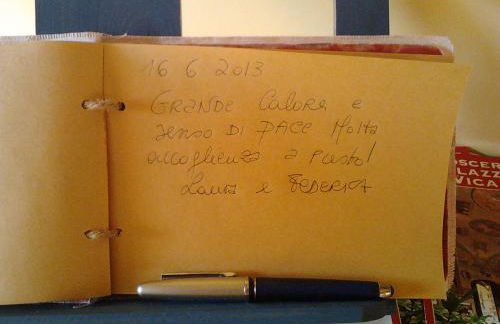 16 6 2013
GRANDE Calore e
senso DI PACE Molta
accoglienza a Pasto!
Laura e FEDERICA
OSCER
LAZZ
VICA